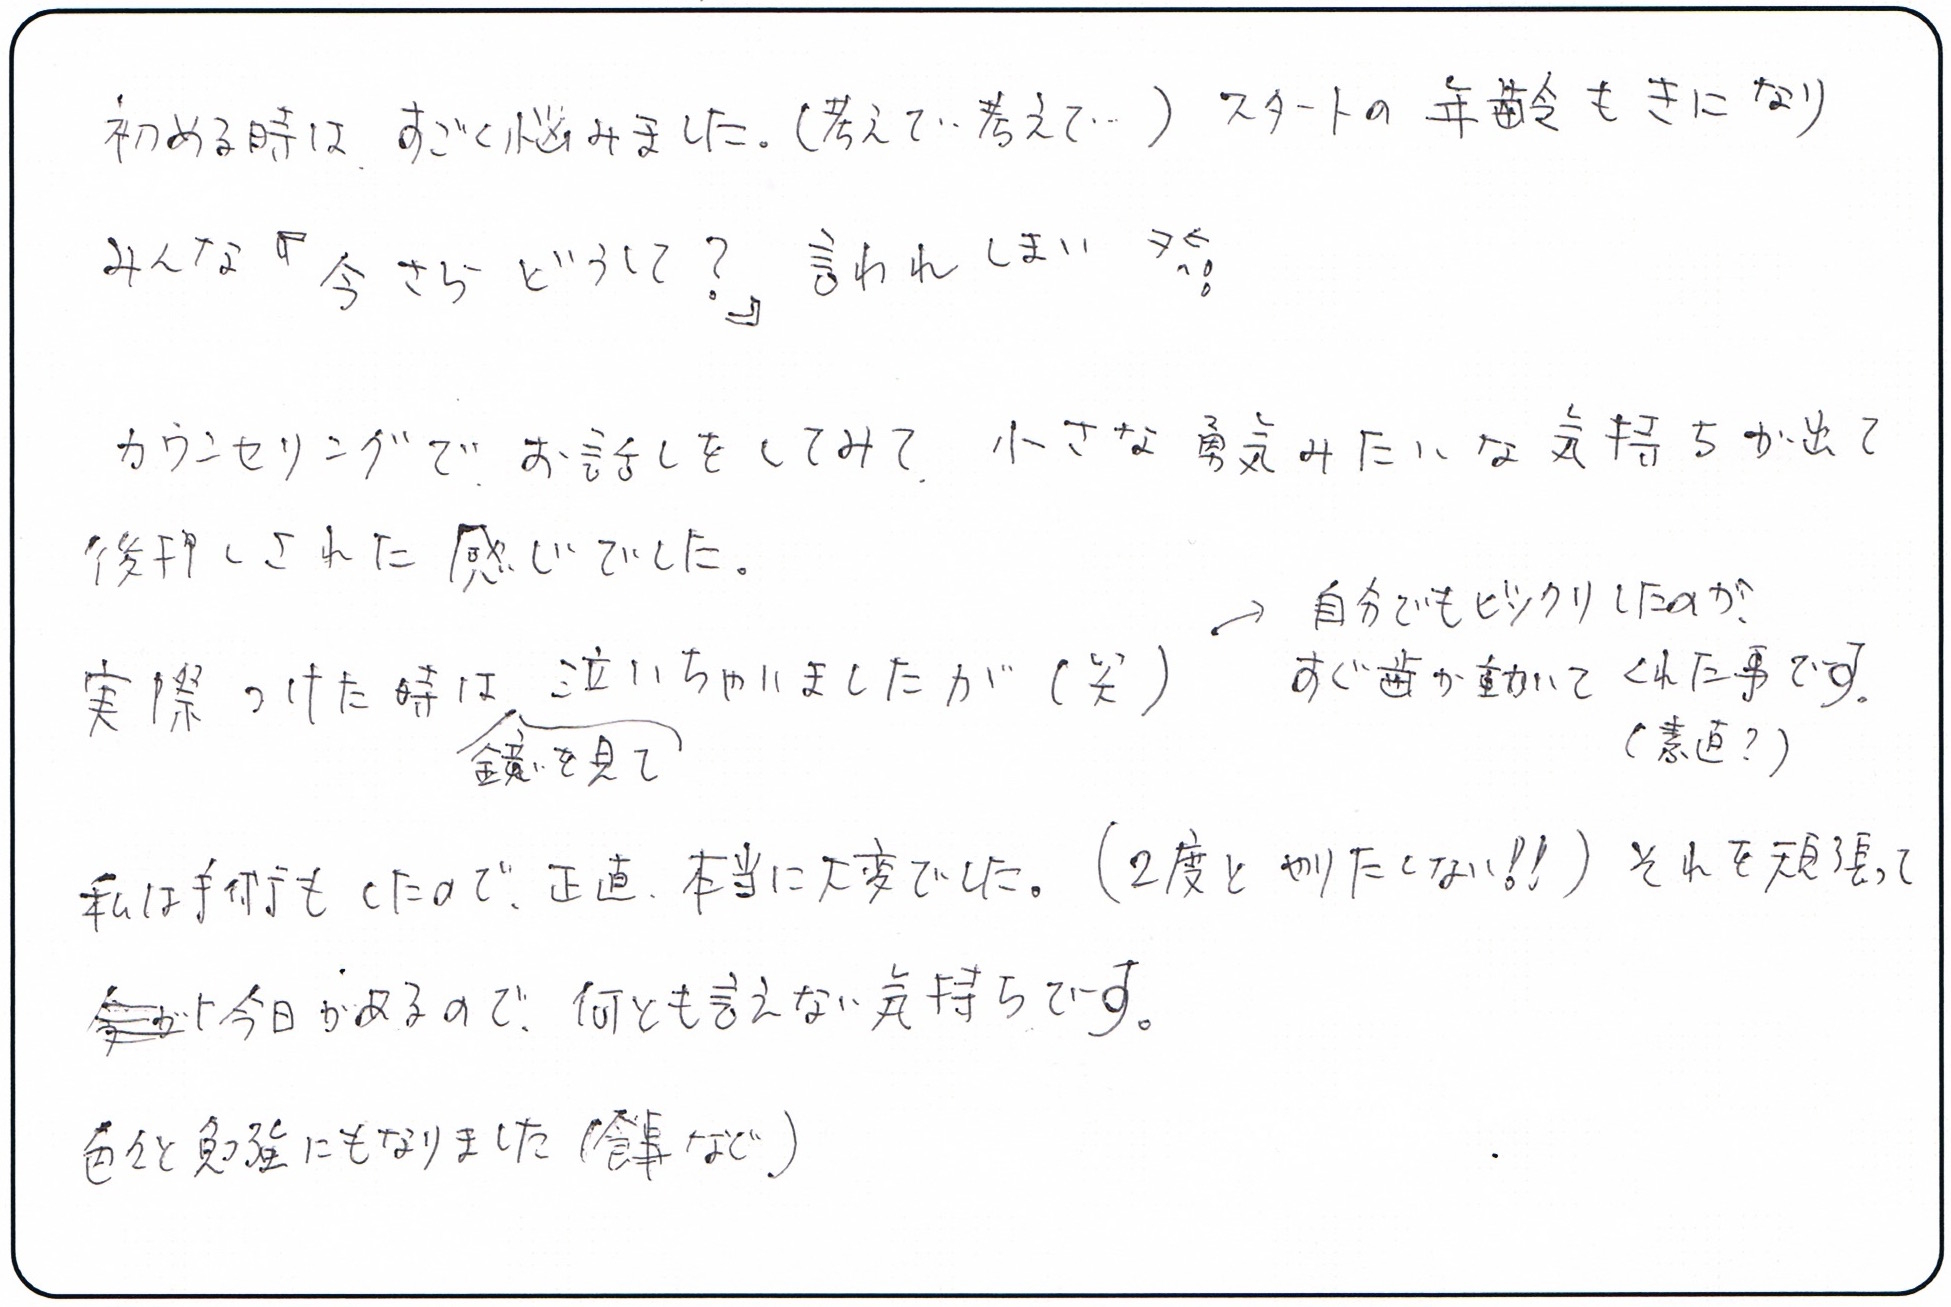 初める時は、すごく悩みました。(考えて‥考えて‥) スタートの年齢もきになり
みんな『今さらどうして?』言われしまい
カウンセリングで、お話しをしてみて、小さな勇気みたいな気持ちが出て
後押しされた感じでした。
実際つけた時は、泣いちゃいましたが(笑)
鏡を見て
→ 自分でもビックリしたのが、
すぐ歯が動いてくれた事です。
(素直?)
私は手術もしたので、正直、本当に大変でした。(2度とやりたくない!!) それを頑張って
今日があるので、何とも言えない気持ちです。
色々と勉強にもなりました(食事など)